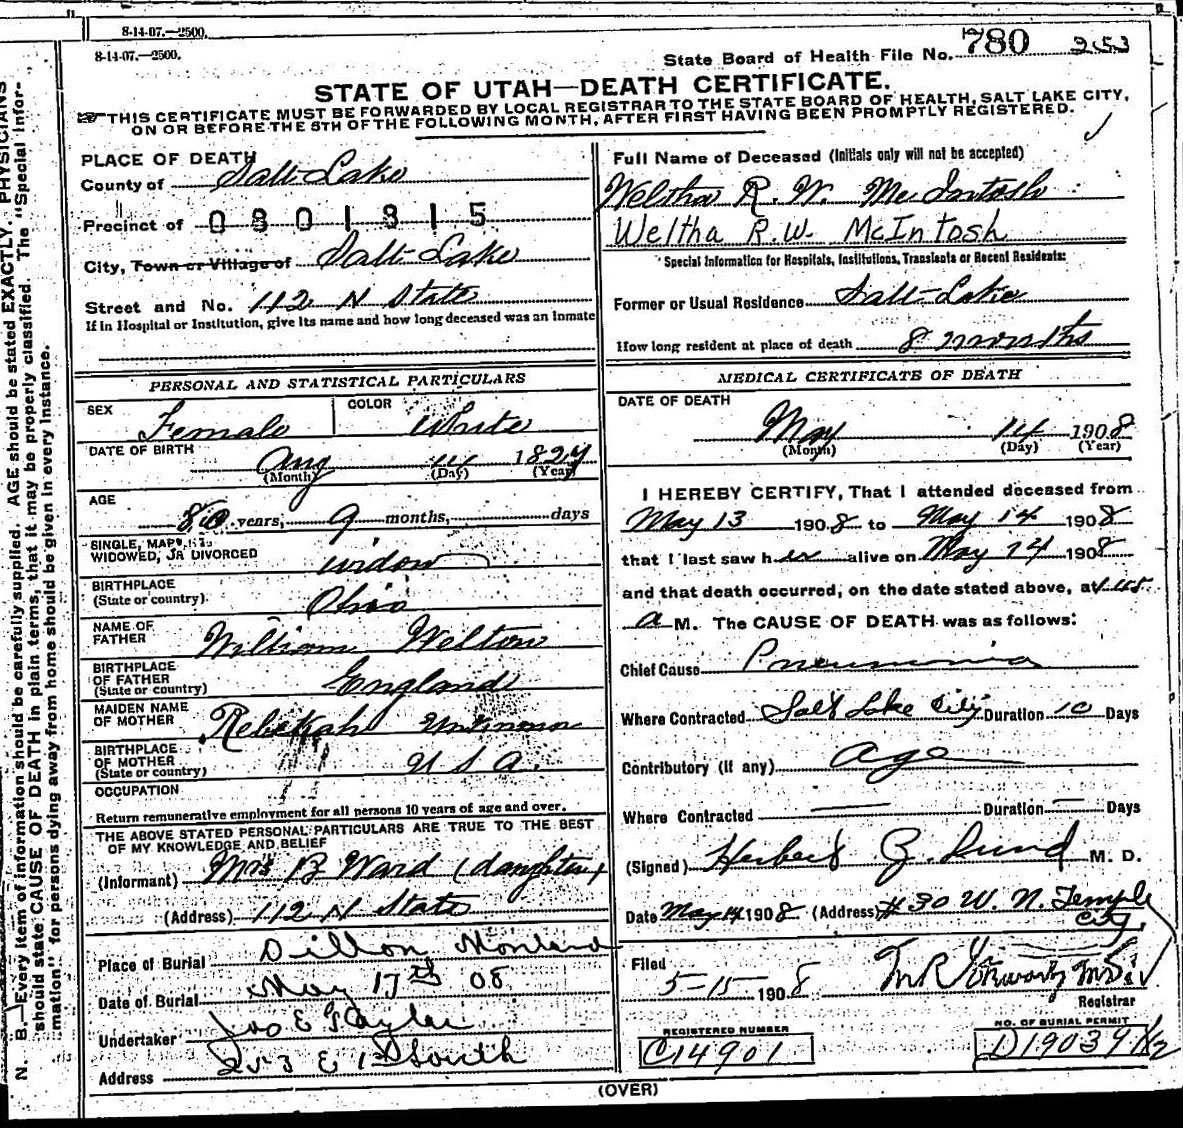 8-14-07.—2500.
8-14-07.—2500.
State Board of Health File No. 780 253
STATE OF UTAH—DEATH CERTIFICATE.
THIS CERTIFICATE MUST BE FORWARDED BY LOCAL REGISTRAR TO THE STATE BOARD OF HEALTH, SALT LAKE CITY,
ON OR BEFORE THE 5TH OF THE FOLLOWING MONTH, AFTER FIRST HAVING BEEN PROMPTLY REGISTERED.
PLACE OF DEATH
County of Salt Lake
Precinct of 0801315
City, Town or Village of Salt Lake
Street and No. 112 N State
If in Hospital or Institution, give its name and how long deceased was an inmate
PERSONAL AND STATISTICAL PARTICULARS
SEX Female COLOR White
DATE OF BIRTH Aug 14 1827
(Month) (Day) (Year)
AGE 80 years, 9 months, days
SINGLE,
WIDOWED, OR DIVORCED widow
BIRTHPLACE
(State or country) Ohio
NAME OF
FATHER William Welton
BIRTHPLACE
OF FATHER
(State or country) England
MAIDEN NAME
OF MOTHER Rebekah Unknown
BIRTHPLACE
OF MOTHER
(State or country) U S A.
OCCUPATION
Return remunerative employment for all persons 10 years of age and over.
THE ABOVE STATED PERSONAL PARTICULARS ARE TRUE TO THE BEST
OF MY KNOWLEDGE AND BELIEF
(Informant) Mrs B Ward (daughter)
(Address) 112 N State
Place of Burial Dillon Montana
Date of Burial May 17th 08
Undertaker Jos E Taylor
Address 253 E 1st South
Full Name of Deceased (Initials only will not be accepted)
Weltha R. W. McIntosh
Weltha R.W. McIntosh
Special Information for Hospitals, Institutions, Transients or Recent Residents:
Former or Usual Residence Salt Lake
How long resident at place of death 8 months
MEDICAL CERTIFICATE OF DEATH
DATE OF DEATH
May 14 1908
(Month) (Day) (Year)
I HEREBY CERTIFY, That I attended deceased from
May 13 1908 to May 14 1908
that I last saw her alive on May 14 1908
and that death occurred, on the date stated above, at
a M. The CAUSE OF DEATH was as follows:
Chief Cause Pneumonia
Where Contracted Salt Lake City Duration 10 Days
Contributory (if any) age
Where Contracted — Duration — Days
(Signed) Herbert Z. Lund M. D.
Date May 14 1908 (Address) #30 W. N. Temple
City
Filed
5-15-1908
Registrar
REGISTERED NUMBER
C14901
NO. OF BURIAL PERMIT
D19039 1/2
(OVER)
N. B.—Every item of information should be carefully supplied. AGE should be stated EXACTLY. PHYSICIANS
should state CAUSE OF DEATH in plain terms, that it may be properly classified. The "Special Infor-
mation" for persons dying away from home should be given in every instance.